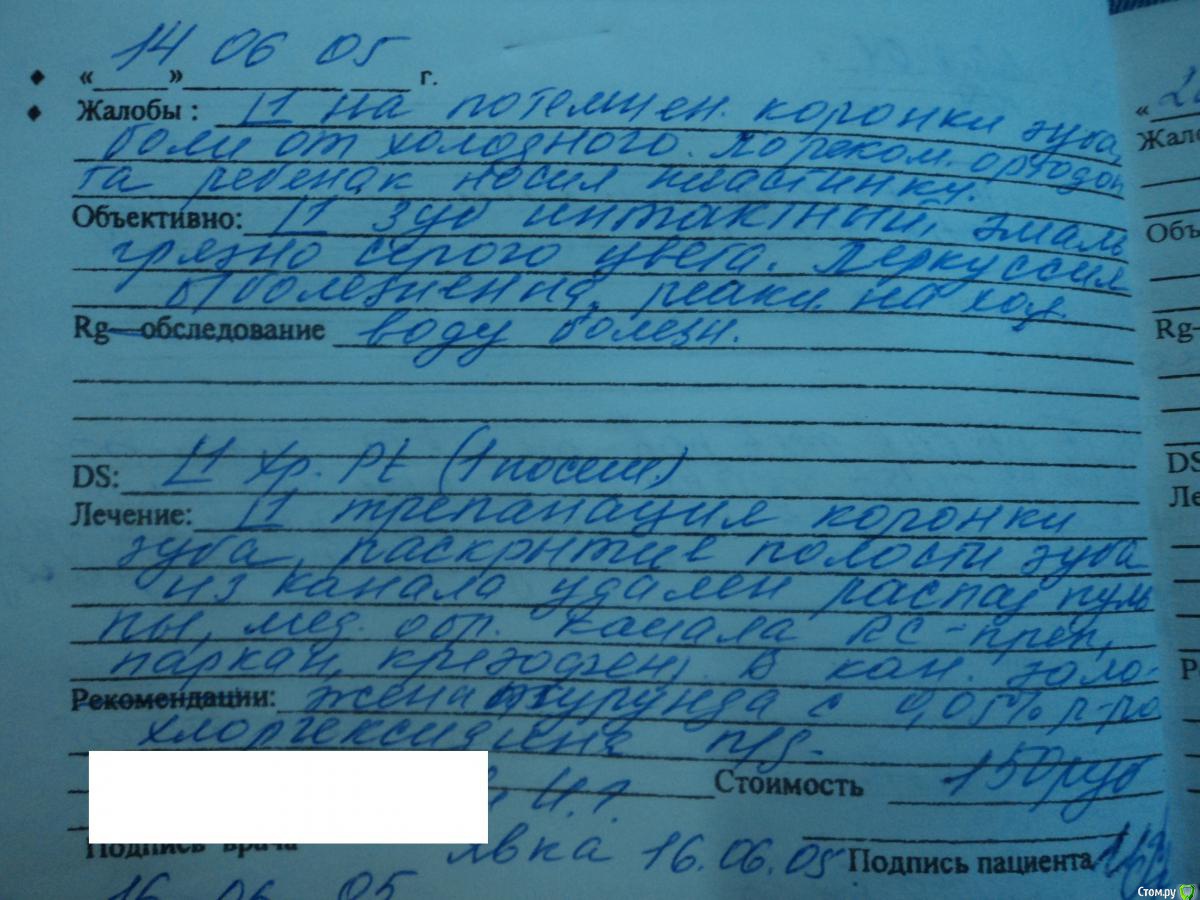 « 14 » 06 05 г.
Жалобы : 11 на потемнен. коронки зуба,
боли от холодного. По реком. ортодон
та ребенак носил пластинку.
Объективно: 11 зуб интактный, эмаль
грязно серого цвета. Перкуссия
болезненна, реакц. на хол.
Rg–обследование воду болезн.
DS: 11 Хр. Pt (1 посещ.)
Лечение: 11 трепанация коронки
зуба, раскрытие полости зуба
из канала удален распад пуль
пы, мед. обр. канала RC-преп,
паркан, крезофен. В кан. зало-
Рекомендации: жена турунда с 0,05% р-ра
хлоргексидина п/в.
Стоимость 150 руб
Подпись врача явка 16.06.05 Подпись пациента
16 06 05
«
Жало
Объ
Rg-
DS
Ле
Р
Стом.ру